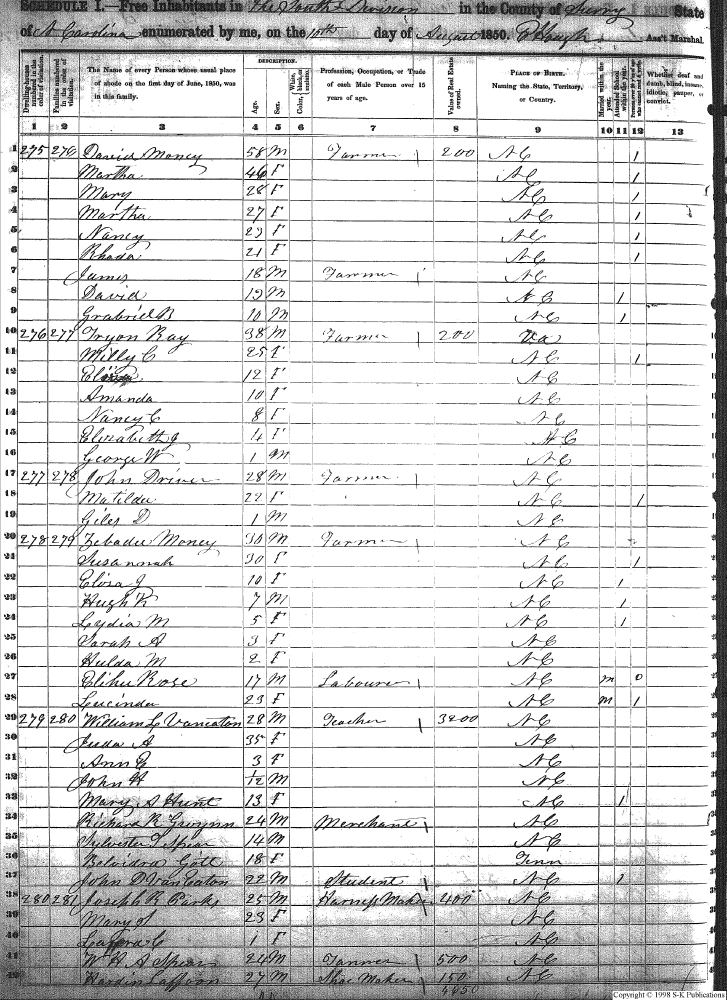 SCHEDULE I.—Free Inhabitants in The South Division in the County of Surry State
of N Carolina enumerated by me, on the 10th day of August 1850. Ass't Marshal.
Dwelling-houses numbered in the order of visitation.
Families numbered in the order of visitation.
The Name of every Person whose usual place of abode on the first day of June, 1850, was in this family.
DESCRIPTION.
Age.
Sex.
White, black, or mulatto.
Color,
Profession, Occupation, or Trade of each Male Person over 15 years of age.
Value of Real Estate owned.
PLACE OF BIRTH. Naming the State, Territory, or Country.
Married within the year.
Attended School within the year.
Whether deaf and dumb, blind, insane, idiotic, pauper, or convict.
1 2 3 4 5 6 7 8 9 10 11 12 13
1 275 276 David Money 58 M Farmer 1 200 NC 1
2 Martha 46 F NC 1
3 Mary 28 F NC 1
4 Martha 27 F NC 1
5 Nancy 23 F NC 1
6 Rhoda 21 F NC 1
7 James 18 M Farmer 1 NC
8 David 13 M NC 1
9 Grabriel B 10 M NC 1
10 276 277 Tryon Ray 38 M Farmer 1 200 Va
11 Milly C 25 F NC 1
12 12 F NC
13 Amanda 10 F NC
14 Nancy C 8 F NC
15 Elizabeth J 4 F NC
16 George W 1 M NC
17 277 278 John Driver 28 M Farmer 1 NC
18 Matilda 22 F NC 1
19 Giles D 1 M NC
20 278 279 Zebadee Money 30 M Farmer 1 NC
21 Susannah 30 F NC 1
22 Eliza J 10 F NC 1
23 Hugh R 7 M NC 1
24 Lydia M 5 F NC 1
25 Sarah A 3 F NC
26 Hulda M 2 F NC
27 Elihu Rose 17 M Labourer 1 NC m 0
28 Lucinda 23 F NC m 1
29 279 280 William L Vaneaton 28 M Teacher 1 3200 NC
30 Juda A 35 F NC
31 Ann E 3 F NC
32 John H 1/12 M NC
33 Mary S Hunt 13 F NC 1
34 Richard R Gwynn 24 M Merchant 1 NC
35 Sylvester Spear 14 M NC
36 Gott 18 F Tenn
37 John D Van Eaton 22 M Student 1 NC 1
38 280 281 Joseph R Parks 25 M Harness Maker 400 NC
39 Mary J 23 F NC
40 1 F NC
41 W H A Spear 24 M Tanner 500 NC
42 Hardin Laffoon 27 M Shoe Maker 150 NC
4650
Copyright © 1998 S-K Publications